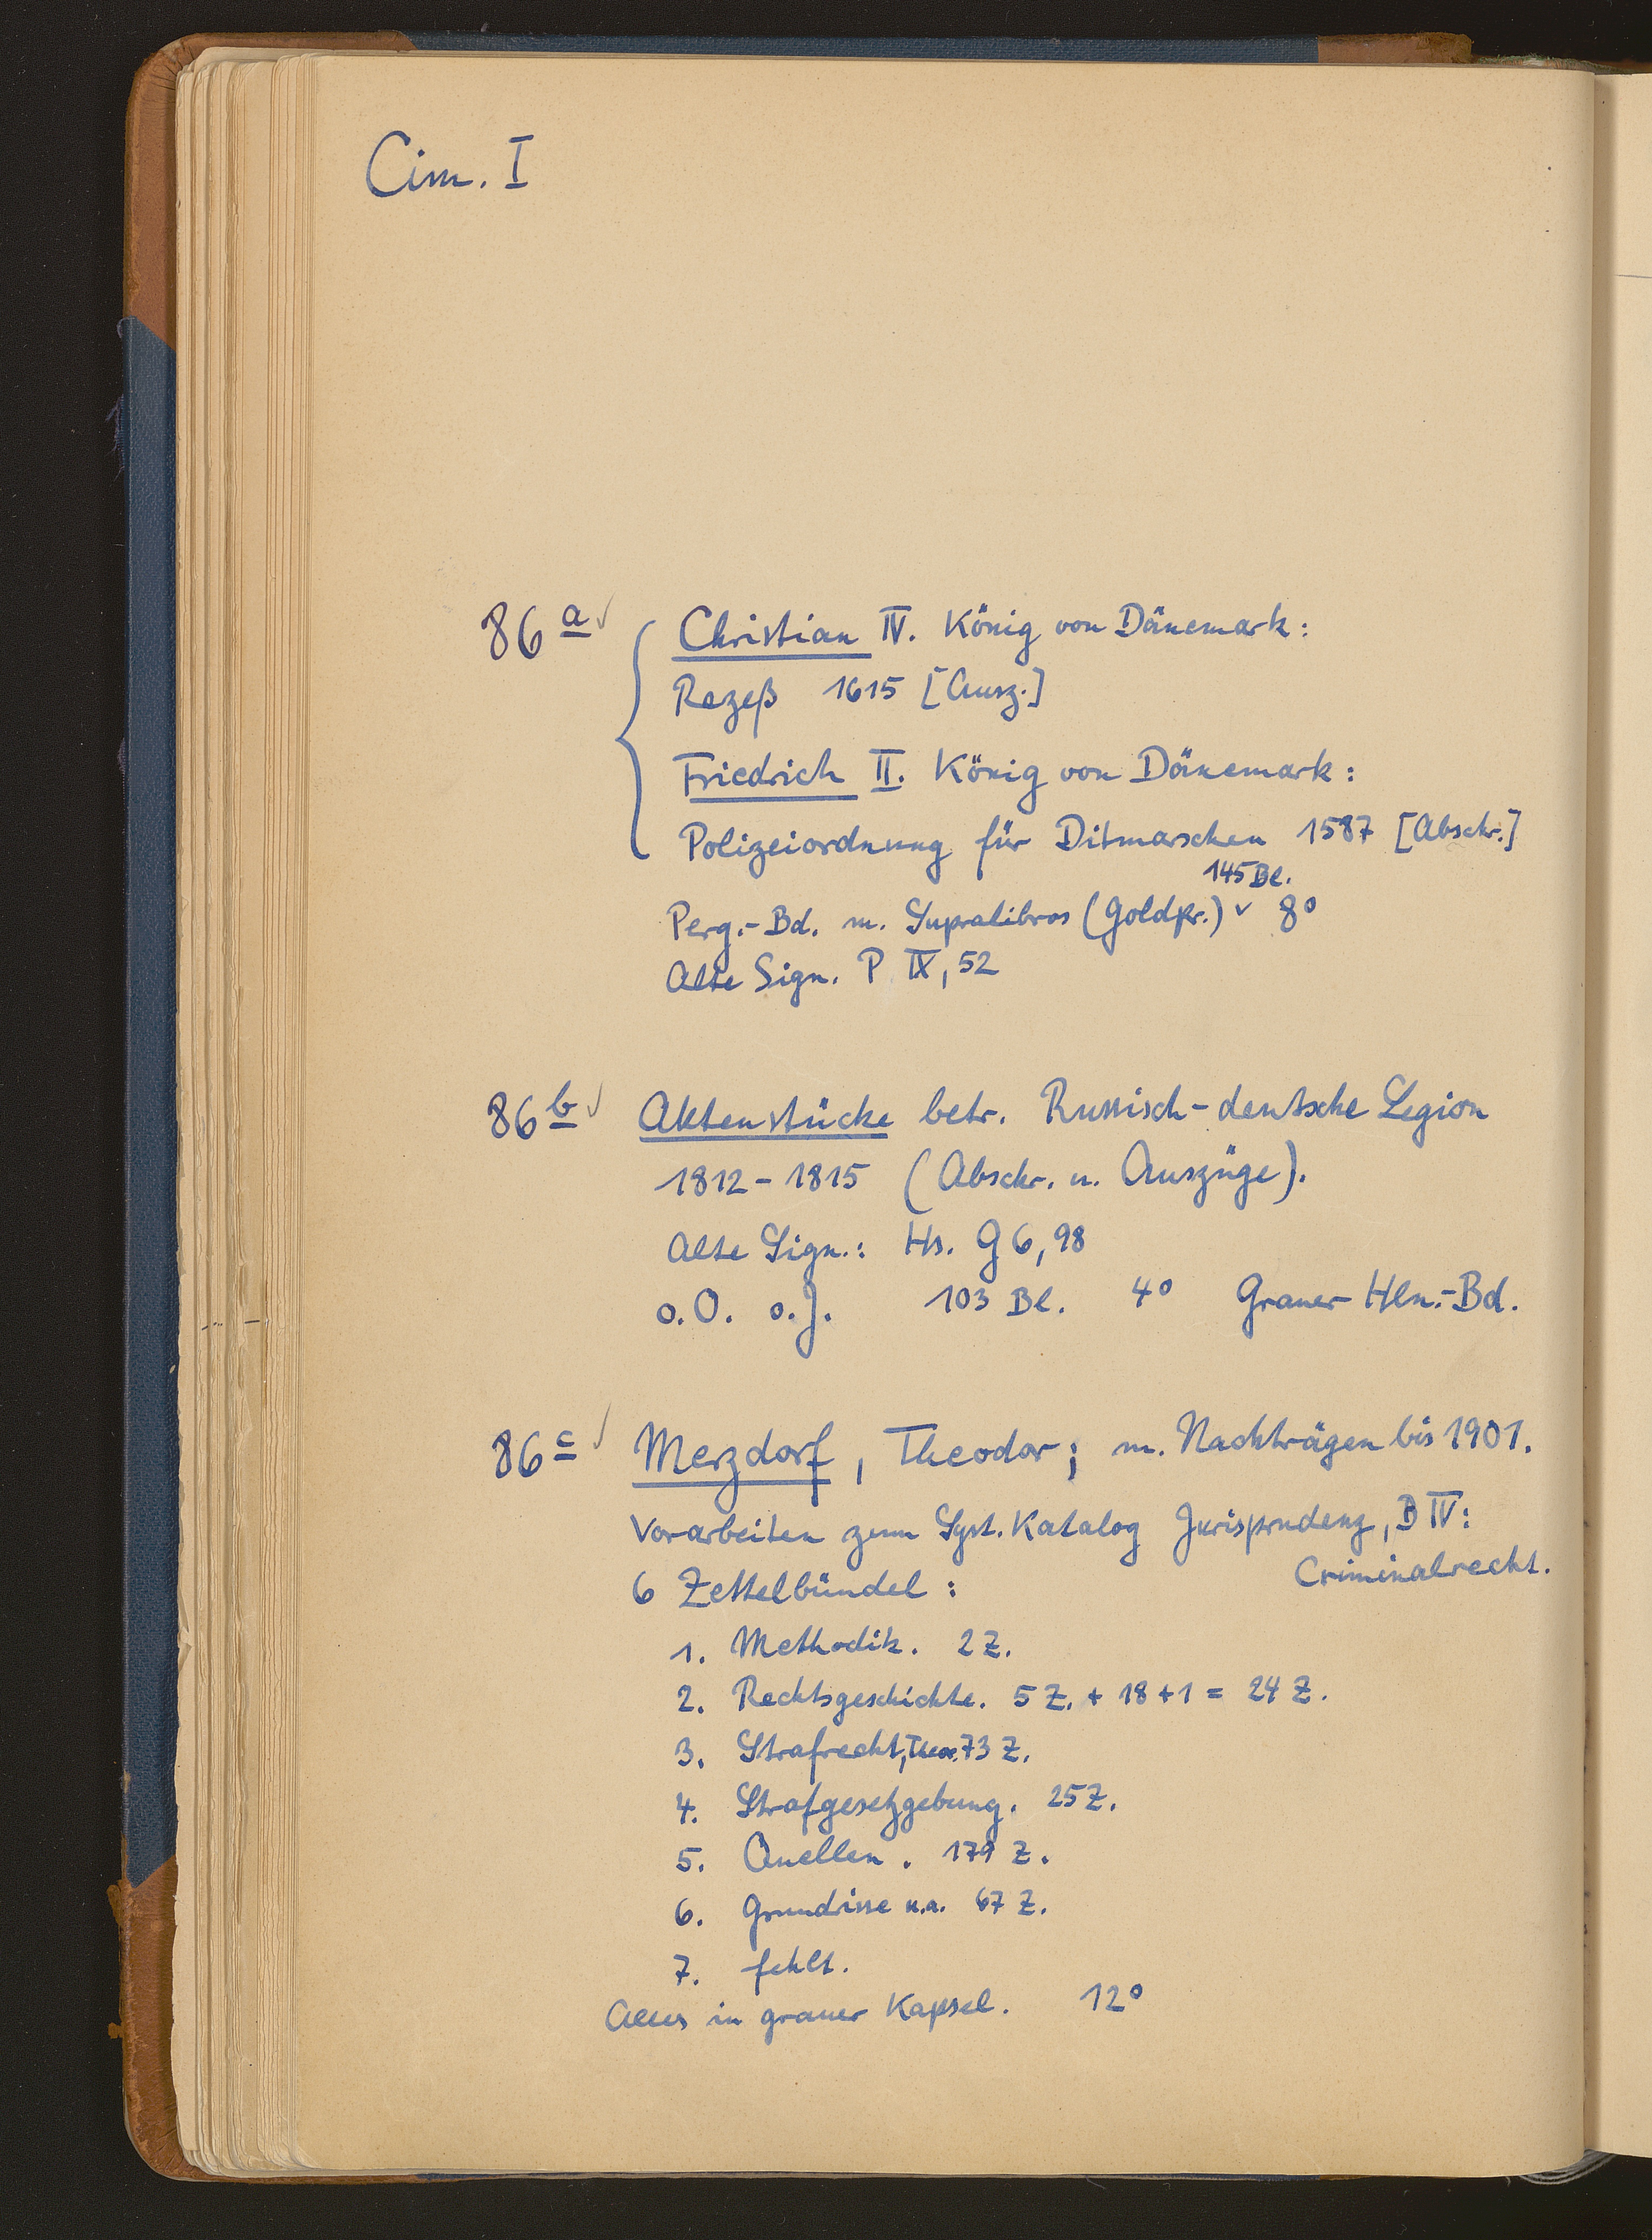 Cim. I
86 a ✓ Christian IV. König von Dänemark:
Rezeß 1615 [Ausz.]
Friedrich II. König von Dänemark:
Polizeiordnung für Ditmarschen 1587 [Abschr.]
145 Bl.
Perg.-Bd. m. Supralibros (Goldpr.) ˅ 8°
Alte Sign. P IX, 52
86 b ✓ Aktenstücke betr. Russisch-deutsche Legion
1812 - 1815 (Abschr. u. Auszüge).
Alte Sign.: Hs. G 6, 98
o. O. o. J. 103 Bl. 4° Grauer Hln.-Bd.
86 c ✓ Merzdorf, Theodor; m. Nachträgen bis 1901.
Vorarbeiten zum Syst. Katalog Jurisprudenz, B IV:
Criminalrecht.
6 Zettelbündel:
1. Methodik. 2 Z.
2. Rechtsgeschichte. 5 Z. + 18 + 1 = 24 Z.
3. Strafrecht, Theor. 73 Z.
4. Strafgesetzgebung. 25 Z.
5. Quellen. 179 Z.
6. Grundrisse u.a. 67 Z.
7. fehlt.
Alles in grauer Kapsel. 12°